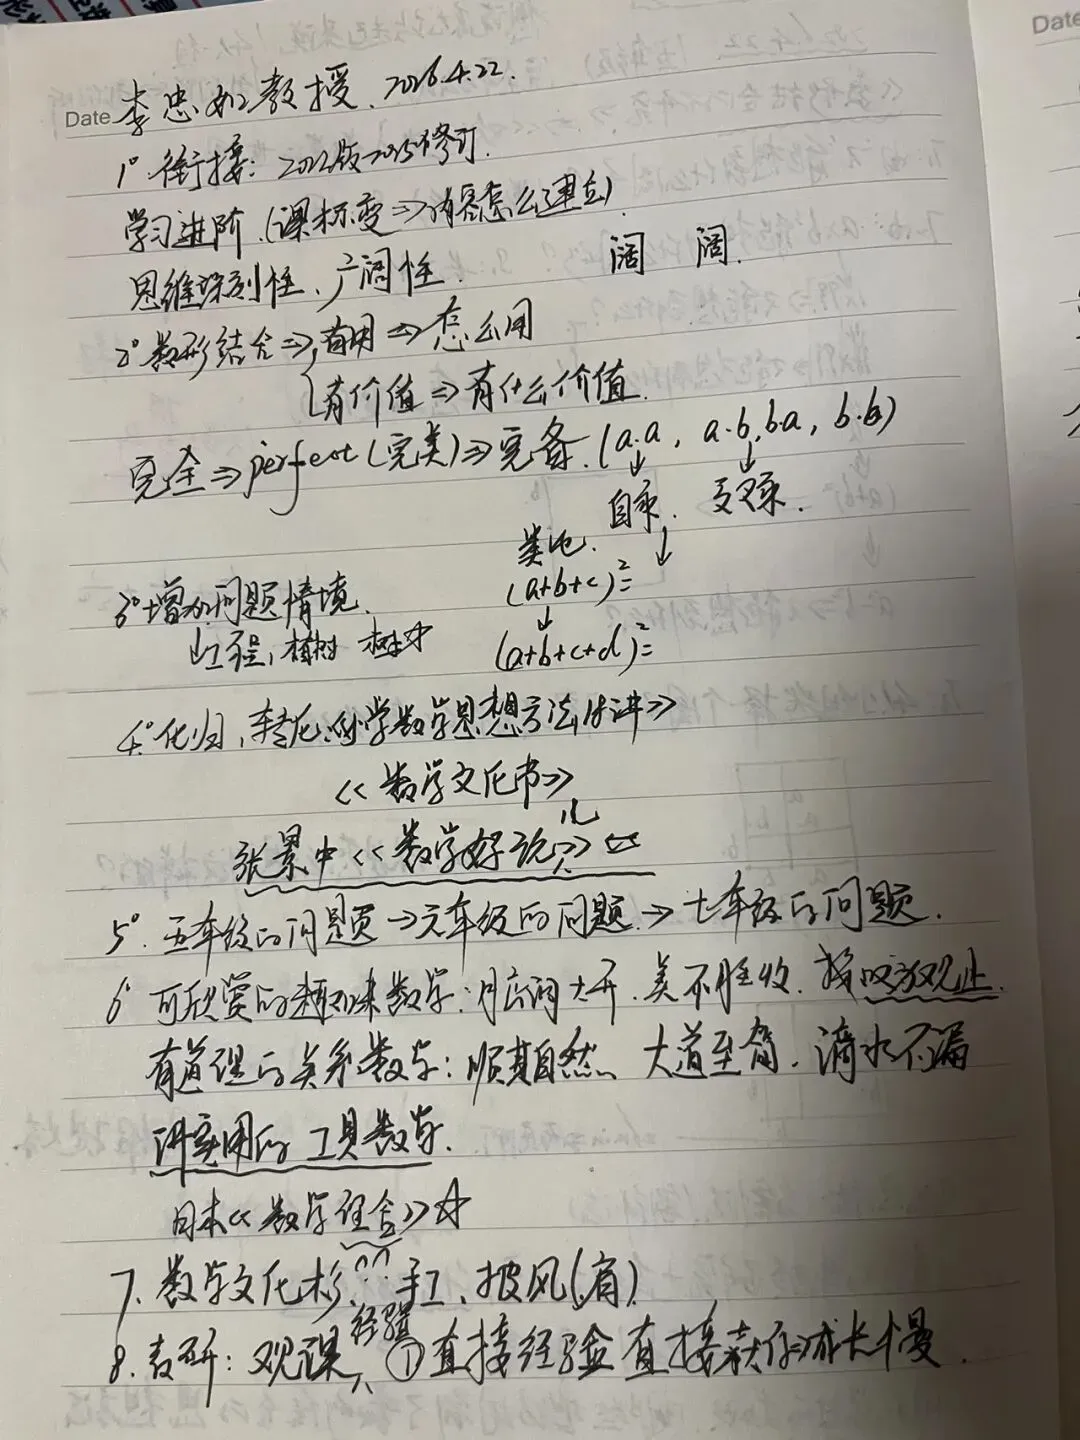 Date 李忠如教授. 2026.4.22.
1° 衔接: 2022版2025修订.
学习进阶.(课标变⇒内容怎么建立)
思维深刻性、广阔性. 阔 阔.
2° 数形结合⇒有用⇒怎么用
有价值⇒有什么价值.
完全⇒perfect(完美)⇒完备.(a·a, a·b, b·a, b·b)
↓ ↓
自乘. 交叉乘.
类比. ↓
3° 增加问题情境. (a+b+c)²=
↓工程, 植树 ↓
(a+b+c+d)²=
4° 化归, 转化.《小学数学思想方法
《数学文化书》
张景中《数学好玩》
5°. 五年级的问题→六年级的问题→七年级的问题.
6° 可欣赏的 数学: 大开. 美不胜收. 叹为观止.
有道理的关系数学: 顺其自然、大道至简. 滴水不漏
讲实用的工具数学.
日本《数学 》☆
7. 数学文化衫. 手工、披风(肩)
8. 教研: 观课 经验 ①直接经验 直接获得⇒成长慢.
Date